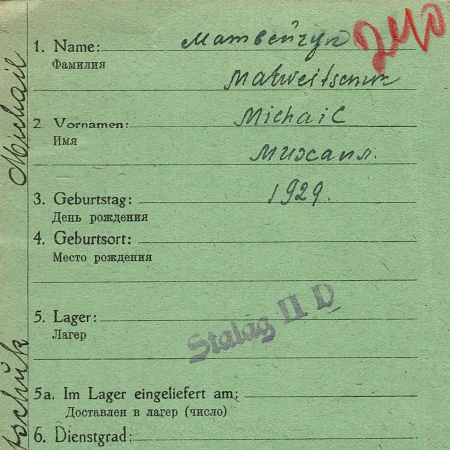 1. Name: Матвейчук
Фамилия
Matweitschuk
2. Vornamen: Michail
Имя
Михаил.
3. Geburtstag: 1929.
День рождения
4. Geburtsort:
Место рождения
5. Lager:
Лагер
Stalag II D
5a. Im Lager eingeliefert am:
Доставлен в лагер (число)
6. Dienstgrad:
Michail